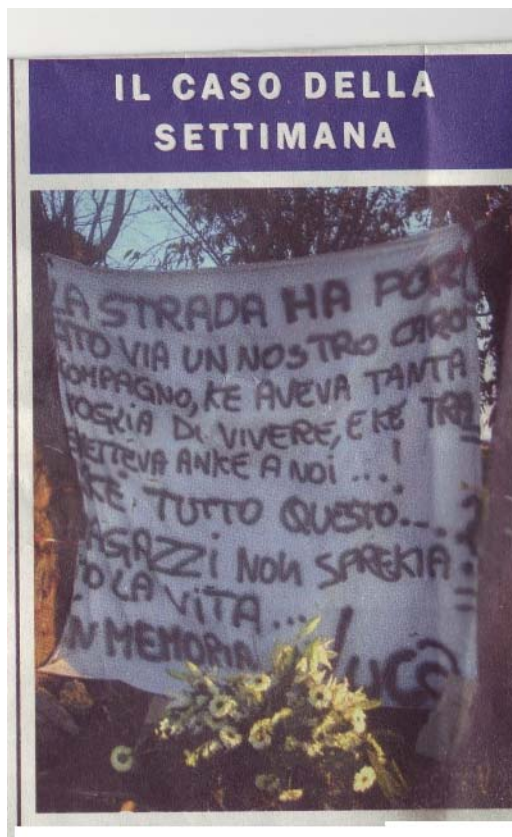 IL CASO DELLA
SETTIMANA
LA STRADA HA POR
ATO VIA UN NOSTRO CARO
COMPAGNO, KE AVEVA TANTA
VOGLIA DI VIVERE, E KE TRA
ETTEVA ANKE A NOI ...!
KE TUTTO QUESTO...?
AGAZZI NON SPREKIA
O LA VITA...
IN MEMORIA Luca